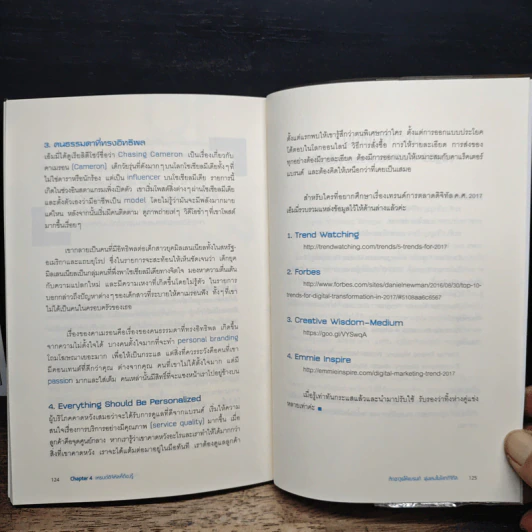 3. คนธรรมดาที่ทรงอิทธิพล
เอ็มมี่ได้ดูเรียลิตี้โชว์ชื่อว่า Chasing Cameron เป็นเรื่องเกี่ยวกับ
คาเมรอน (Cameron) เด็กวัยรุ่นที่ดังมากๆ บนโลกโซเชียลมีเดียทั้งๆ ที่
ไม่ใช่ดาราหรือนักร้อง แต่เป็น influencer บนโซเชียลมีเดีย รายการนี้
เกิดในช่วงอินสตาแกรมเพิ่งเปิดตัว เขาเริ่มโพสต์สิ่งต่างๆ ผ่านโซเชียลมีเดีย
และตั้งตัวเองว่ามีอาชีพเป็น model โดยไม่รู้ว่ามันจะมีพลังมากมาย
แค่ไหน หลังจากนั้นเริ่มมีคนติดตาม ดูภาพถ่ายเท่ๆ วิดีโอขำๆ ที่เขาโพสต์
มากขึ้นเรื่อยๆ
เขากลายเป็นคนที่มีอิทธิพลต่อเด็กสาวยุคมิลเลนเนียลทั้งในสหรัฐ-
อเมริกาและแถบยุโรป ซึ่งในรายการจะสะท้อนให้เห็นชัดเจนว่า เด็กยุค
มิลเลนเนียลเป็นกลุ่มคนที่พึ่งพาโซเชียลมีเดียทางจิตใจ มองหาความตื่นเต้น
กับความแปลกใหม่ และมีความเหงาที่เกิดขึ้นโดยไม่รู้ตัว ในรายการ
บอกกล่าวถึงปัญหาต่างๆ ของเด็กสาวที่ระบายให้คาเมรอนฟัง ทั้งๆ ที่เขา
ไม่ได้เป็นคนในครอบครัวของเธอ
เรื่องของคาเมรอนคือเรื่องของคนธรรมดาที่ทรงอิทธิพล เกิดขึ้น
จากความไม่ตั้งใจได้ บางคนตั้งใจมากที่จะทำ personal branding
โกนโฆษณาเยอะมาก เพื่อให้เป็นกระแส แต่สิ่งที่ควรระวังคือคนที่เขา
มีคอนเทนต์ที่ดีกว่าคุณ ต่างจากคุณ คนที่เขาไม่ได้ตั้งใจมาก แต่มี
passion มากและใส่เต็ม คนเหล่านั้นมีสิทธิ์ที่จะแซงหน้าเราไปอยู่ข้างบน
4. Everything Should Be Personalized
ผู้บริโภคคาดหวังเสมอว่าจะได้รับการดูแลที่ดีจากแบรนด์ เริ่มให้ความ
สนใจเรื่องการบริการอย่างมีคุณภาพ (service quality) มากขึ้น เมื่อ
ลูกค้าคือจุดศูนย์กลาง หากเรารู้ว่าเขาคาดหวังอะไรและเราทำให้ได้มากกว่า
สิ่งที่เขาคาดหวัง เราจะได้แต้มต่อมาอยู่ในมือทันที เราต้องดูแลลูกค้า
124 Chapter 4
ตั้งแต่แรกพบให้เขารู้สึกว่าคนพิเศษกว่าใคร ตั้งแต่การออกแบบประโยค
โต้ตอบในโลกออนไลน์ วิธีการสั่งซื้อ การให้รายละเอียด การส่งของ
ทุกอย่างต้องมีรายละเอียด ต้องมีการออกแบบให้เหมาะสมกับคาแร็คเตอร์
แบรนด์ และต้องคิดให้เหนือกว่าที่เคยเป็นเสมอ
สำหรับใครที่อยากศึกษาเรื่องเทรนด์การตลาดดิจิทัล ค.ศ. 2017
เอ็มมี่รวบรวมแหล่งข้อมูลไว้ให้ด้านล่างแล้วค่ะ
1. Trend Watching
http://trendwatching.com/trends/5-trends-for-2017
2. Forbes
http://www.forbes.com/sites/danielnewman/2016/08/30/top-10-
trends-for-digital-transformation-in-2017/#6109aa6c6567
3. Creative Wisdom-Medium
https://goo.gl/VYSwqA
4. Emmie Inspire
http://emmieinspire.com/digital-marketing-trend-2017
เมื่อรู้เท่าทันกระแสแล้วและนำมาปรับใช้ รับรองว่ายิ่งห่างคู่แข่ง
หลายเท่าค่ะ
125